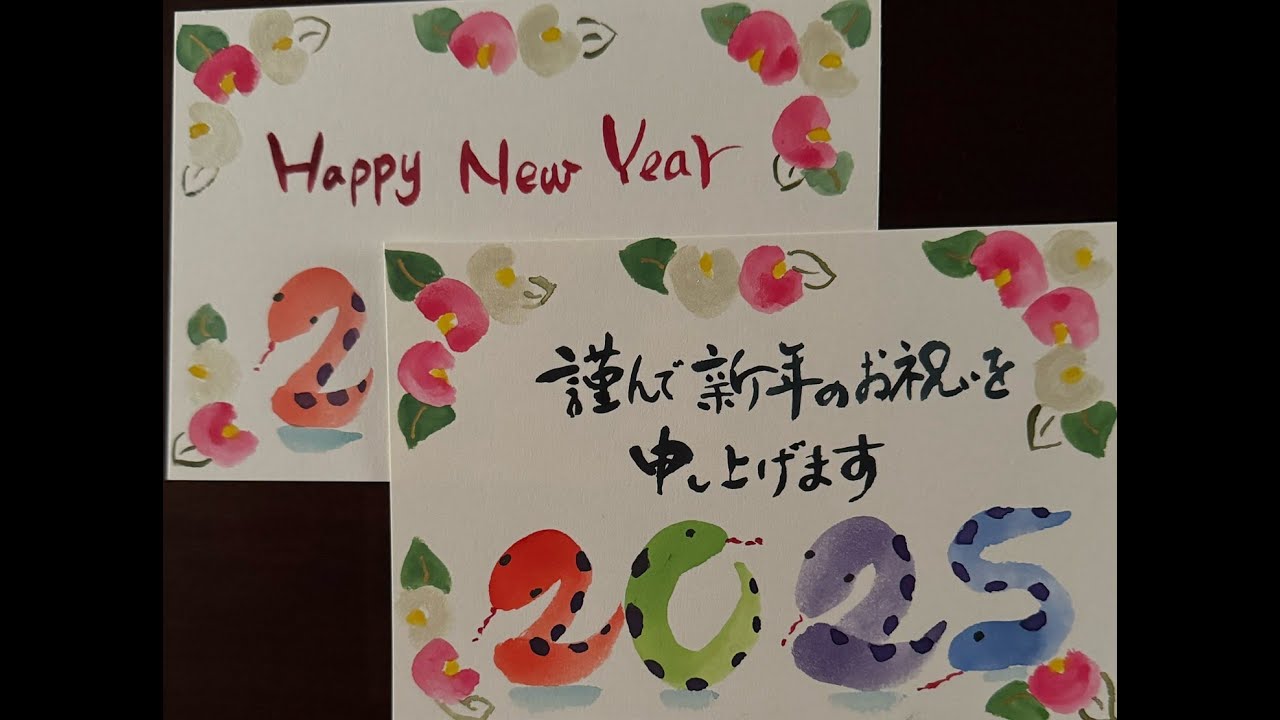 Happy New Year
2
謹んで新年のお祝いを
申し上げます
2025